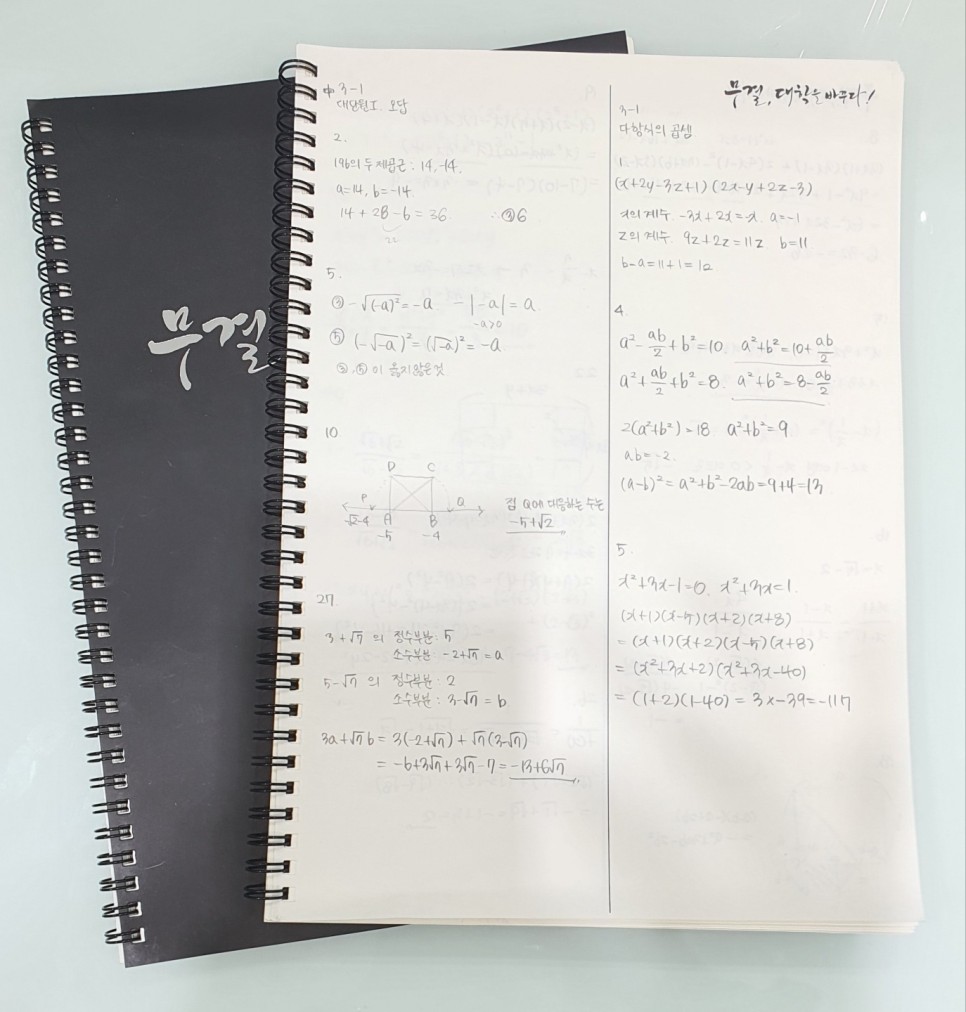 무결
무결, 대학을 바꾸다!
中 3-1
대단원 I. 오답
2.
196의 두 제곱근 : 14, -14.
a=14, b=-14.
14 + 28 - 6 = 36. ∴ ④6
22
5.
③ -√(-a)² = -a. -|-a| = a
-a>0
⑤ (-√-a)² = (√-a)² = -a.
③, ⑤ 이 옳지 않은 것.
10
D C
P Q
√2-4 A B
-5 -4
점 Q에 대응하는 수는
-5+√2
27.
3+√7 의 정수부분: 5
소수부분: -2+√7 = a
5-√7 의 정수부분: 2
소수부분: 3-√7 = b
3a+√7b = 3(-2+√7) + √7(3-√7)
= -6+3√7+3√7-7 = -13+6√7
3-1
다항식의 곱셈
(x+2y-3z+1)(2x-y+2z-3)
x의 계수. -3x+2x=-x. a=-1
z의 계수. 9z+2z=11z b=11
b-a=11+1=12
4.
a²-ab/2+b²=10 a²+b²=10+ab/2
a²+ab/2+b²=8. a²+b²=8-ab/2
2(a²+b²)=18 a²+b²=9
ab=-2.
(a-b)²=a²+b²-2ab=9+4=13
5.
x²+3x-1=0. x²+3x=1.
(x+1)(x-5)(x+2)(x+8)
= (x+1)(x+2)(x-5)(x+8)
= (x²+3x+2)(x²+3x-40)
= (1+2)(1-40) = 3x-39=-117